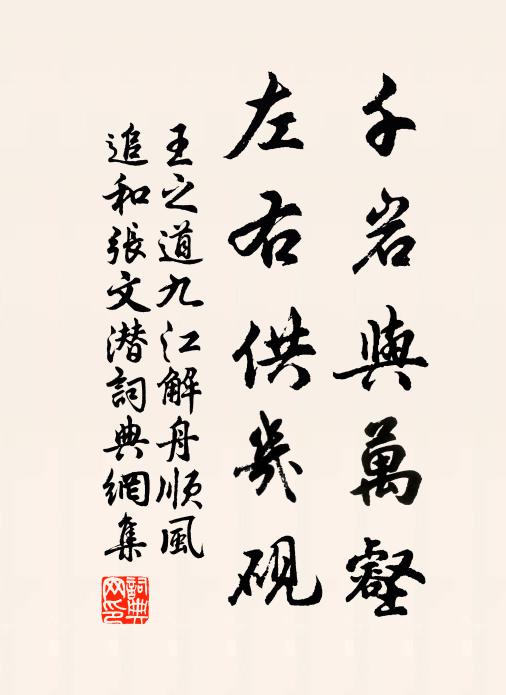 千岩與萬壑
左右供几硯
王之道九江解舟順風
追和張文潜詞典網集
詞典
网印